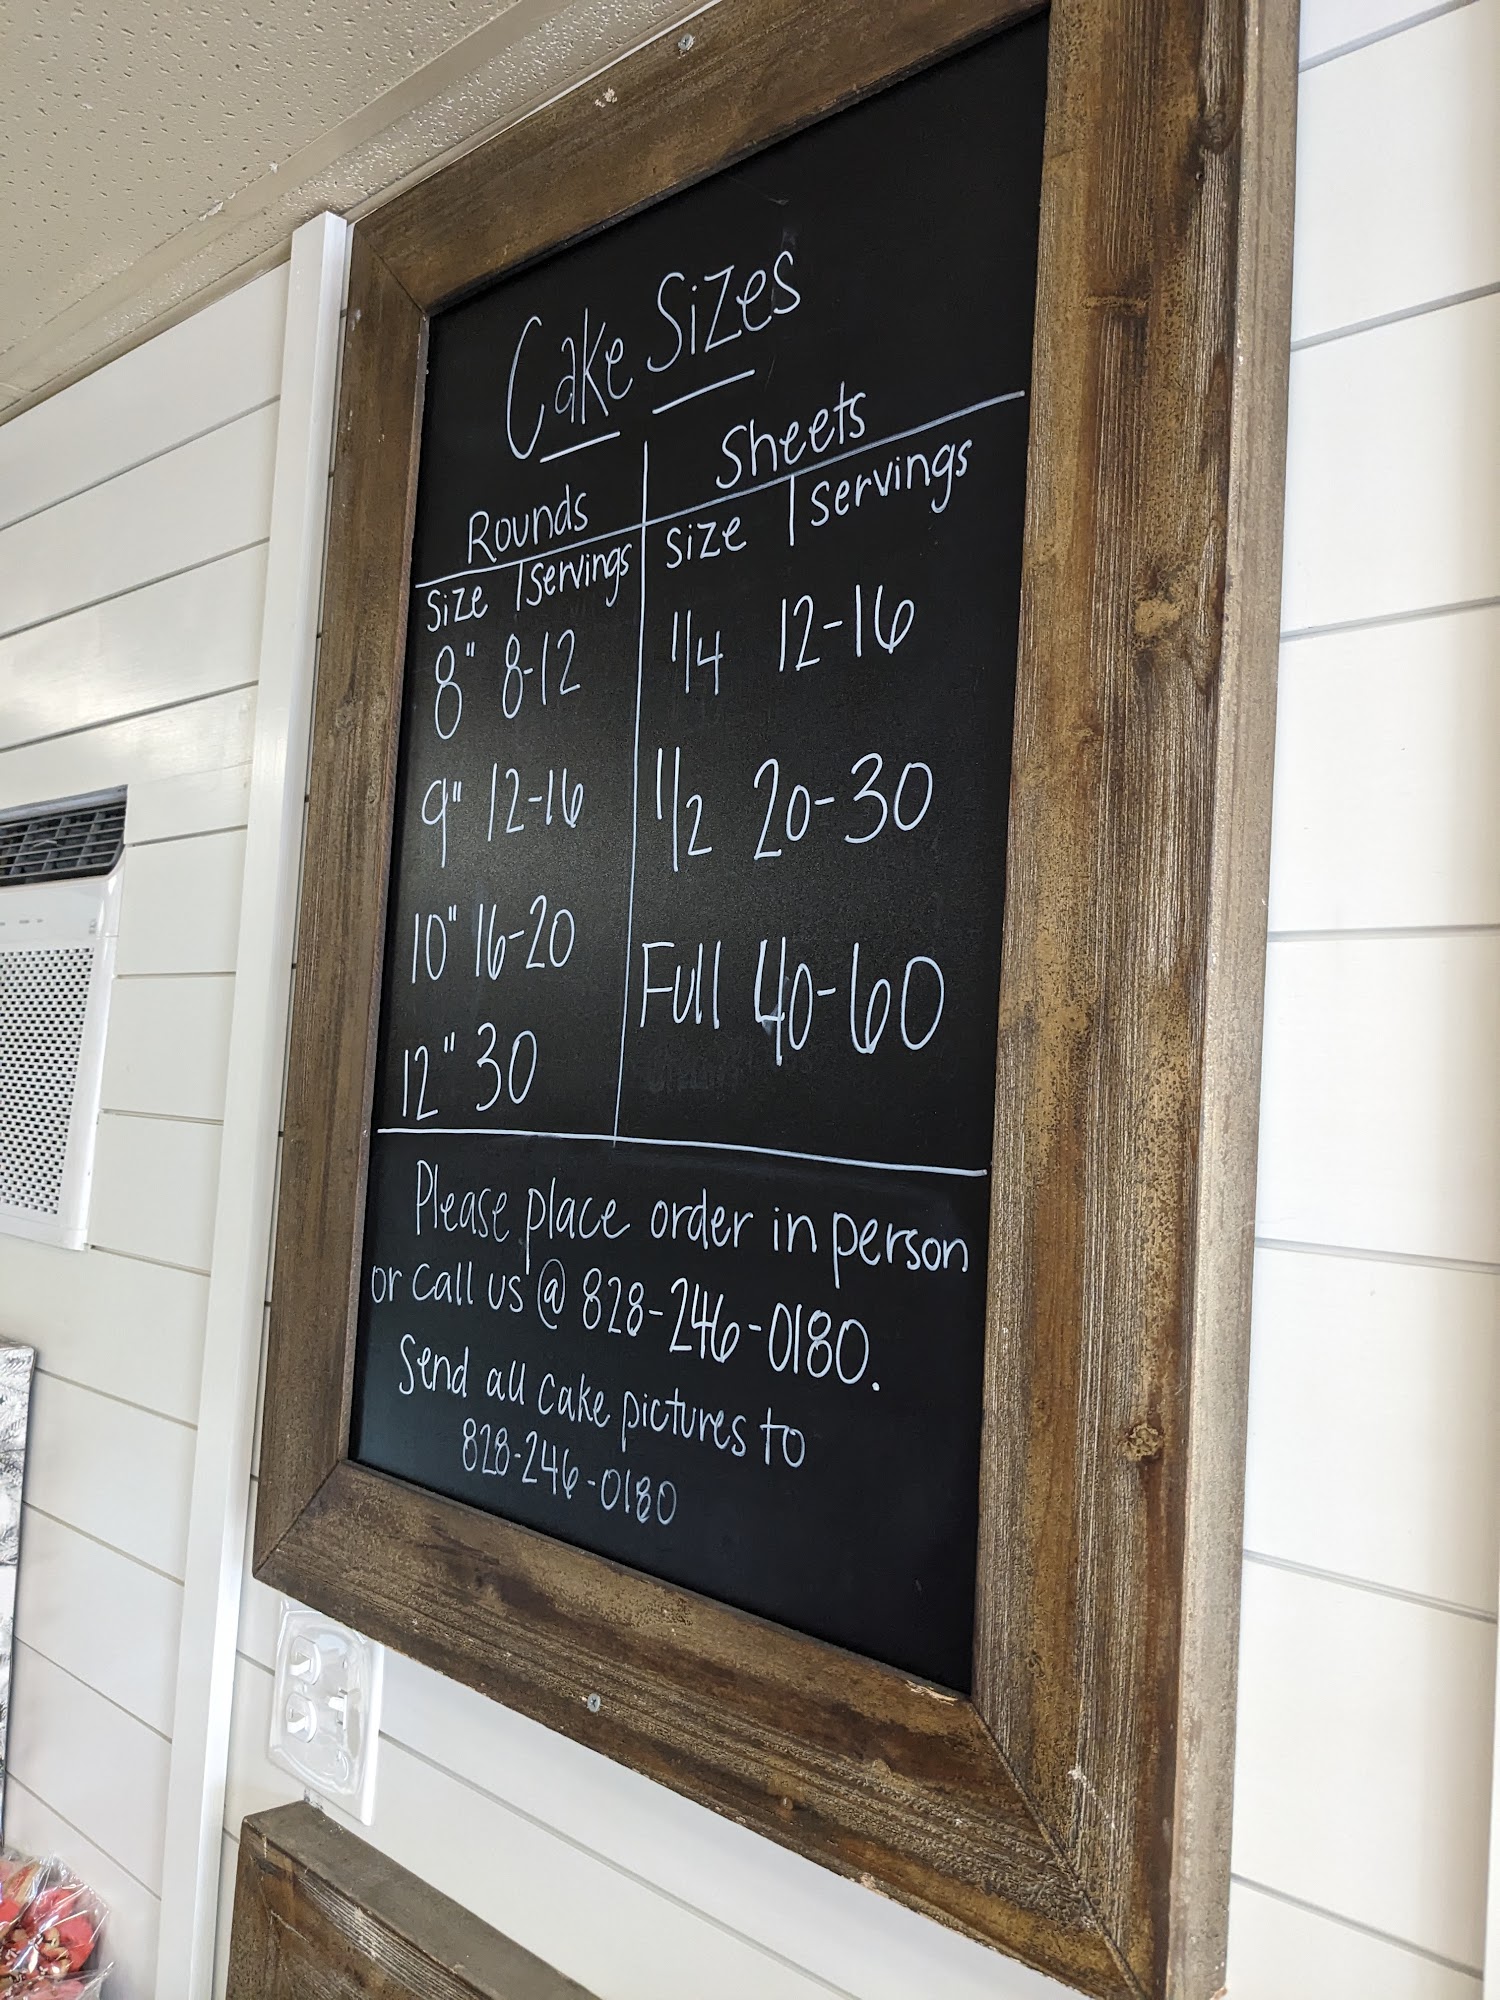 Cake Sizes
Rounds
Size | Servings
8" 8-12
9" 12-16
10" 16-20
12" 30
Sheets
Size | Servings
1/4 12-16
1/2 20-30
Full 40-60
Please place order in person
or call us @ 828-246-0180.
Send all cake pictures to
828-246-0180